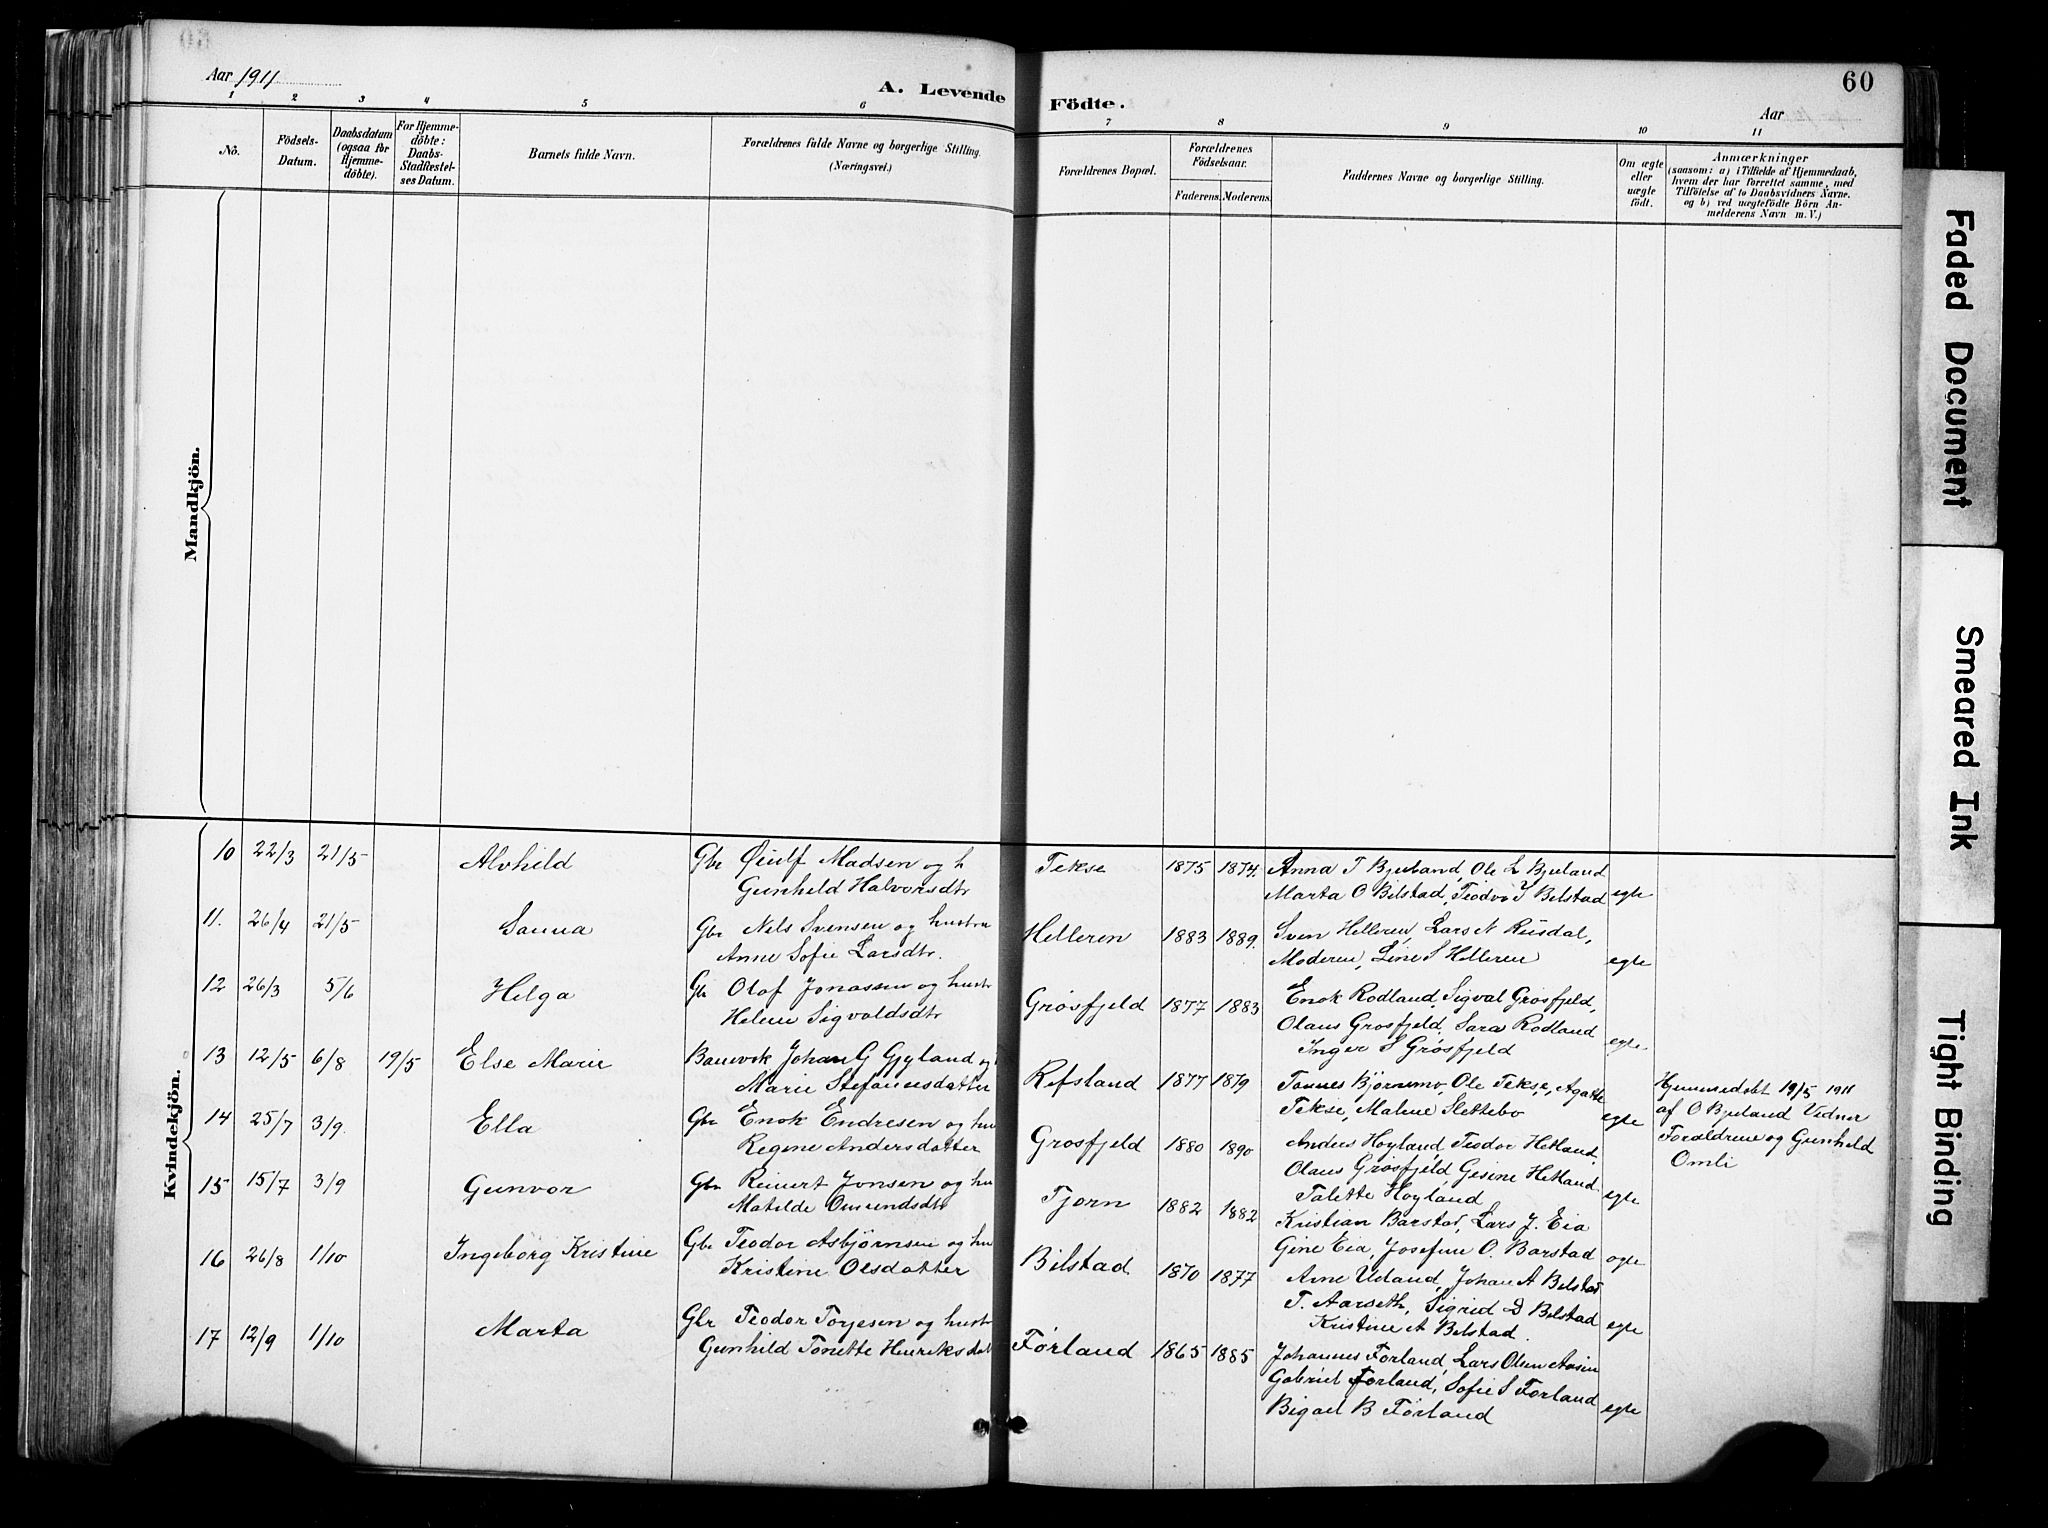 Aar 1911
A. Levende Födte.
Aar
60
1 2 3 4 5 6 7 8 9 10 11
No.
Födsels-
Datum.
Daabsdatum
(ogsaa for
Hjemme-
döbte).
For Hjemme-
döbte:
Daabs-
Stadfæstel-
ses Datum.
Barnets fulde Navn.
Forældrenes fulde Navne og borgerlige Stilling.
(Næringsvei.)
Forældrenes Bopæl.
Forældrenes
Födselsaar.
Faderens. Moderens.
Faddernes Navne og borgerlige Stilling.
Om ægte
eller
uægte
födt.
Anmærkninger
(saasom: a) i Tilfælde af Hjemmedaab,
hvem der har forrettet samme, med
Tilföielse af to Daabsvidners Navne.
og b) ved uægtefödte Börn An-
melderens Navn m. V.)
Mandkjön.
Kvindekjön.
10 22/3 21/5 Alvhild Gbr Øiulf Madsen og h
Gunhild Halvorsdtr
Tekse 1875 1874. Anna T Bjuland, Ole L Bjuland
Marta O Bilstad, Teodor T Bilstad egte
11. 26/4 21/5 Sanna Gbr Nels Svensen og hustru
Anne Sofie Larsdtr.
Helleren 1883 1889. Sven Helleren, Lars N Rusdal,
Moderen, Line S Helleren egte
12 26/3 5/6 Helga Gbr Olaf Jonassen og hustr
Helene Sigvaldsdtr
Grøsfjeld 1877 1883 Enok Rodland, Sigval Grøsfjeld,
Olaus Grosfjeld, Sara Rodland
Inger S Grøsfjeld egte
13 12/5 6/8 19/5 Else Marie Banevok Johan G Gyland og
Marie Stefanusdatter
Refsland 1877 1879 Tønnes Bjørnmo, Ole Tekse, Agathe
Tekse, Malene Slettebo egte
Hjemmedøbt 19/5 1911
af O Bjuland Vidner
Forældrene og Gunhild
Omli
14 25/7 3/9. Ella Gbr Enok Endresen og hu
Regine Andersdatter
Grosfjeld 1880 1890 Anders Hoyland, Teodor Hetland,
Olaus Grøsfjeld, Gesine Hetland
Talette Hoyland egte
15 15/7 3/9 Gunvor Gbr Reinert Jonsen og hu
Matilde Omundsdtr
Tjorn 1882 1882 Kristian Barstad, Lars J. Eia
Gine Eia, Josefine O. Barstad egte
16 26/8 1/10 Ingeborg Kristine Gbr Teodor Asbjørnsen og hu
Kristine Olsdatter
Bilstad 1870 1877 Arne Udland, Johan A Bilstad
T. Aarseth, Sigrid D Bilstad
Kristine A Bilstad. egte
17 12/9 1/10 Marta Gbr Teodor Torjesen og hustr
Gunhild Tonette Henriksdat
Førland 1865 1885 Johannes Forland, Lars Olsen Aasen
Gabriel Forland, Sofie S Forland
Bigael B Førland egte
Faded Document
Smeared Ink
Tight Binding